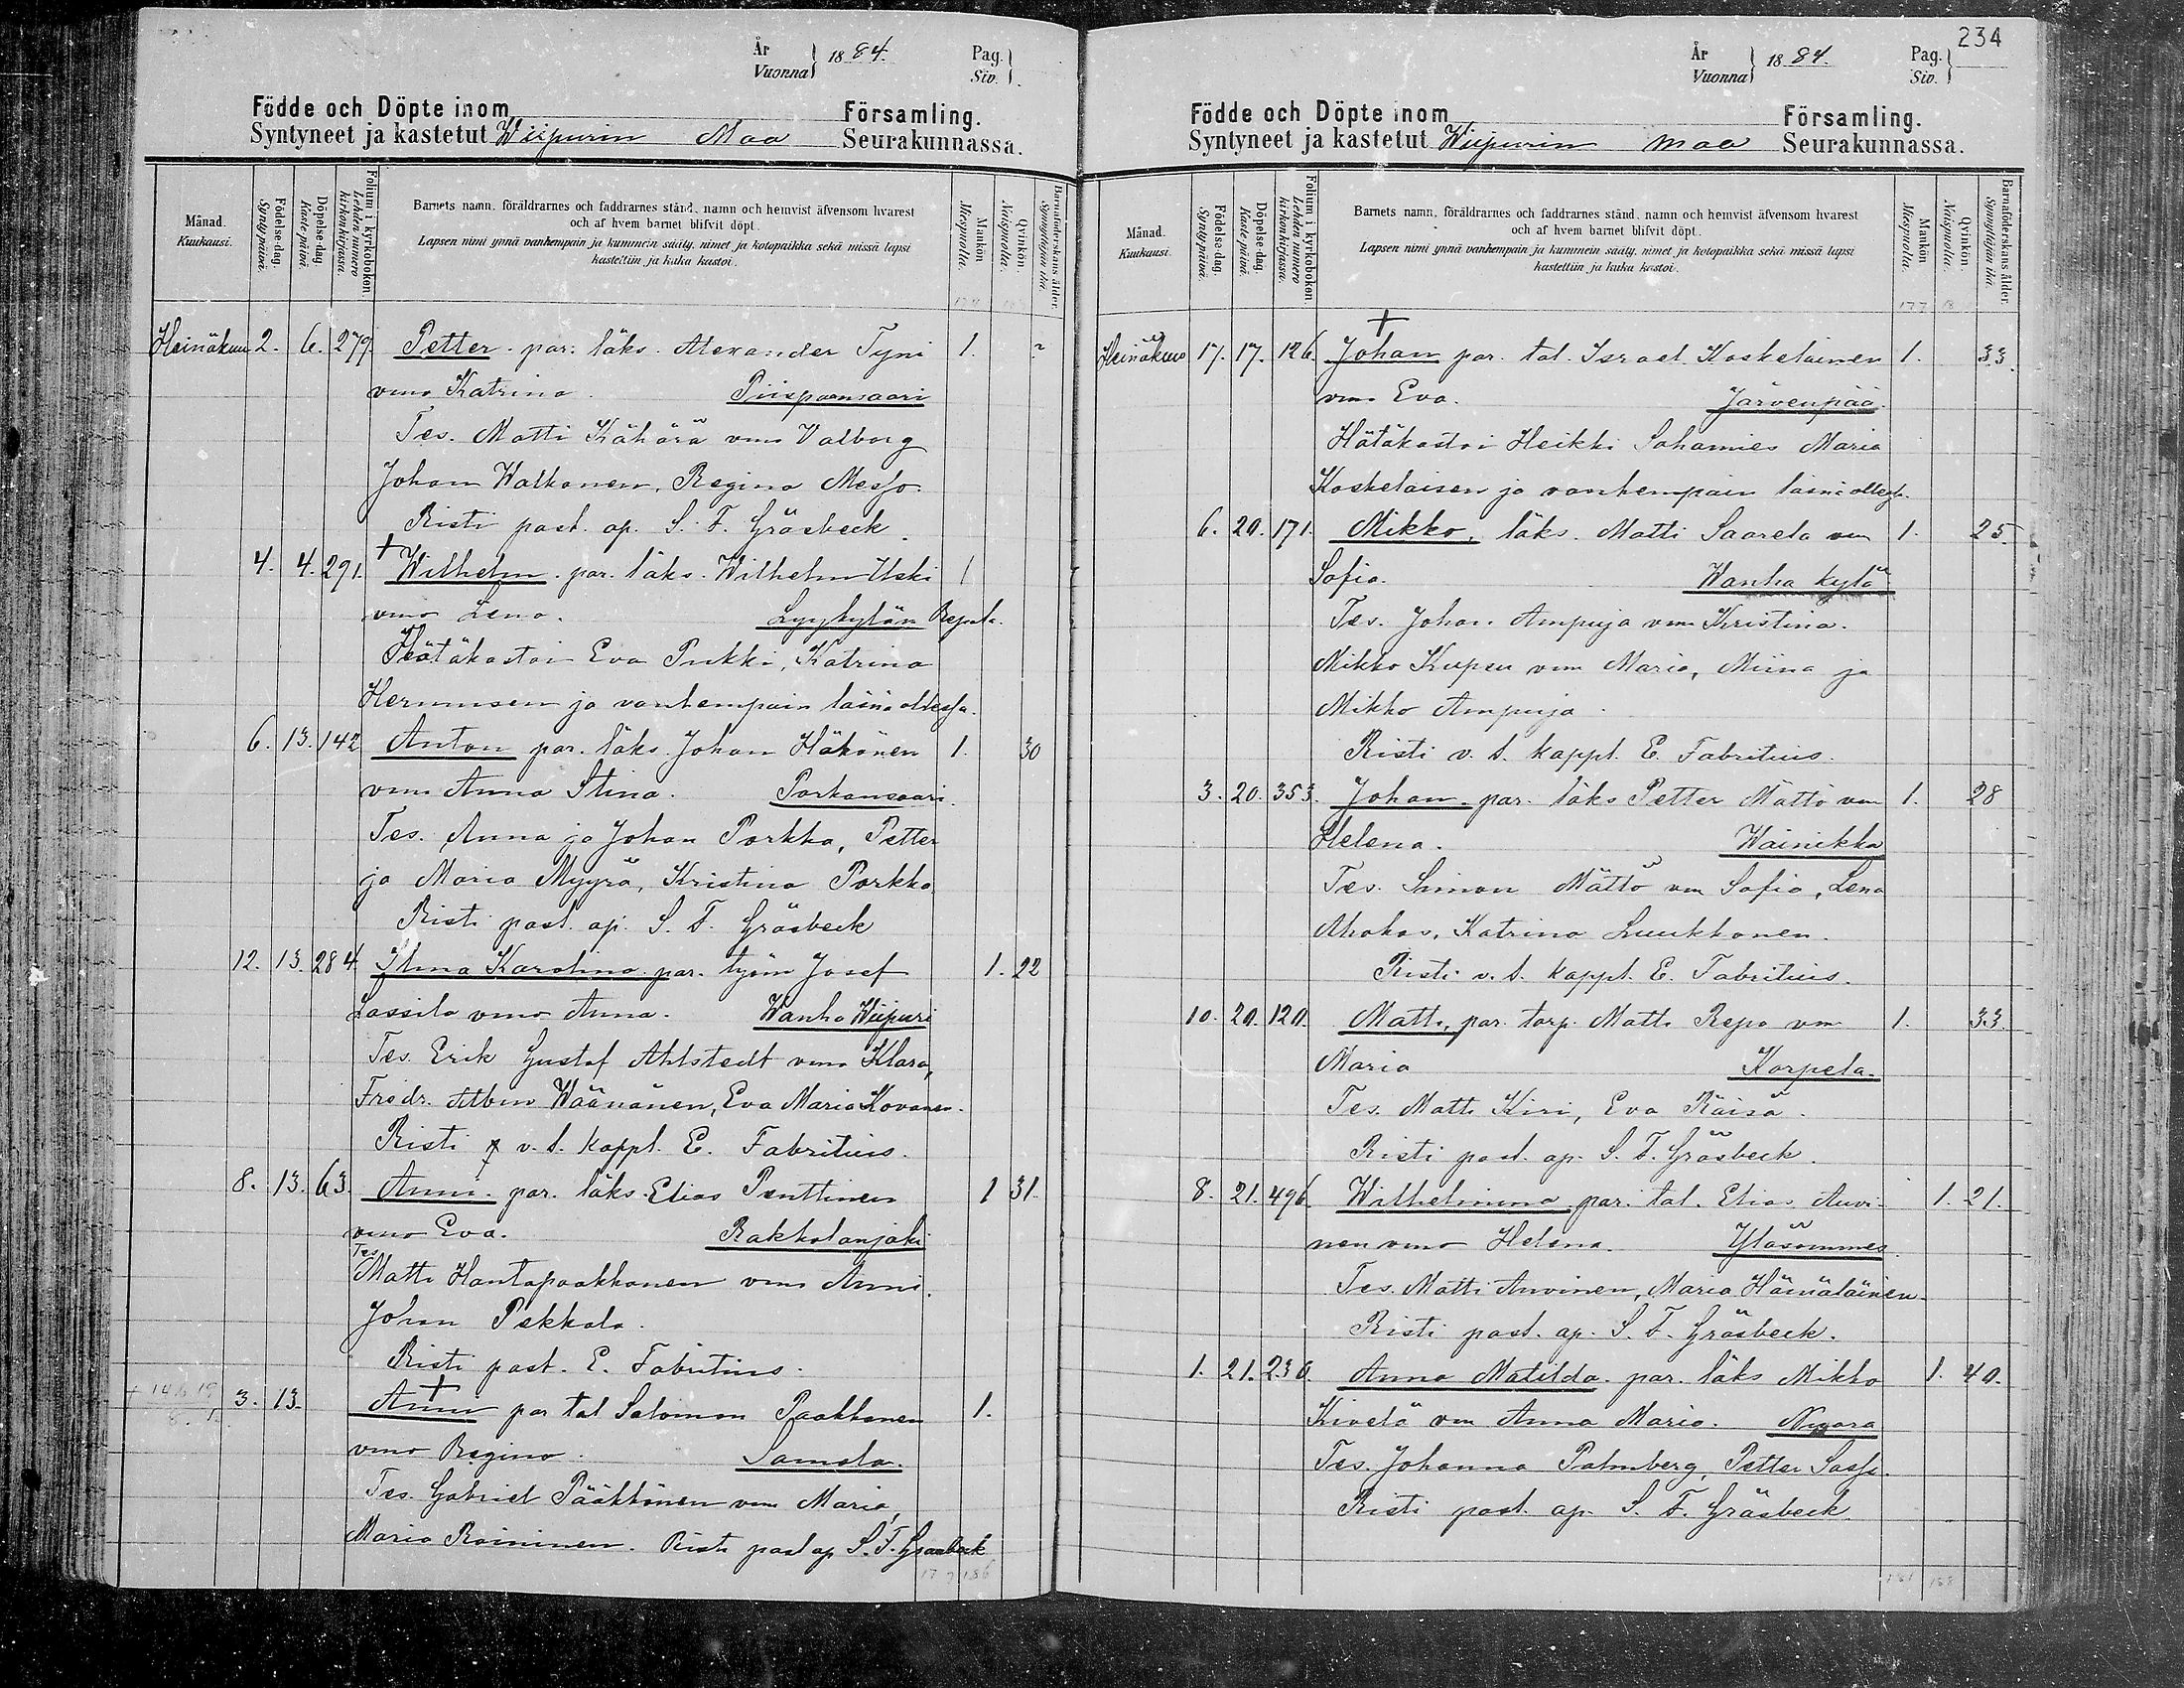 År
Vuonna
1884.
Pag.
Siv.
Födde och Döpte inom
Församling.
Syntyneet ja kastetut Wiipurin Maa Seurakunnassa.
Månad.
Kuukausi.
Födelse-dag.
Syntypäivä.
Döpelse-dag.
Kastepäivä.
Folium i kyrkoboken.
Lehden numero kirkonkirjassa.
Barnets namn, föräldrarnes och faddrarnes stånd, namn och hemvist äfvensom hvarest
och af hvem barnet blifvit döpt.
Lapsen nimi ynnä vanhempain ja kummein sääty, nimet ja kotopaikka sekä missä lapsi
kastettiin ja kuka kastoi.
Mankön
Miespuolia.
Qvinkön.
Naispuolia.
Barnaföderskans ålder.
Synnyttäjän ikä.
Heinäkuu 2. 6. 279. Petter. par. läks. Alexander Tyni 1. ?
vmo Katrina. Piispansaari
Tes. Matti Kähärä vmo Valborg
Johan Walkonen, Regina Messo.
Risti past. ap. S. F. Gräsbeck.
4. 4. 291. + Wilhelm. par. läks. Wilhelm Uski 1
vmo Lena. Lyyhylän Repola.
Hätäkastoi Eva Pukki, Katrina
Hernunsen ja vanhempain läsnä ollessa.
6. 13. 142 Anton par. läks. Johan Häkönen 1. 30
vmo Anna Stina. Porkansaari.
Tes. Anna ja Johan Porkka, Petter
ja Maria Myyrä, Kristina Porkka
Risti past. ap. S. F. Gräsbeck
12. 13. 284 Ilma Karolina par. työm Josef 1. 22
Lassila vmo Anna. Wanha Wiipuri
Tes. Erik Gustaf Ahlstedt vmo Klara,
Fredr. Albin Wäänänen, Eva Maria Kovanen.
Risti v. t. kappl. E. Fabritius.
8. 13. 63. Anni. par. läks. Elias Penttinen 1 31.
vmo Eva. Rakkolanjoki
Tes Matti Hantapaakkonen vmo Anni.
Johan Pekkala.
Risti past. E. Fabritius.
3. 13. + Anni par tal Salomon Paakkonen 1.
vmo Regina. Samola.
Tes. Gabriel Pääkkönen vmo Maria,
Maria Roininen. Risti past ap S. F. Gräsbeck
234
År
Vuonna
1884.
Pag.
Siv.
Födde och Döpte inom
Församling.
Syntyneet ja kastetut Wiipurin maa Seurakunnassa.
Månad.
Kuukausi.
Födelse-dag.
Syntypäivä.
Döpelse-dag.
Kastepäivä.
Folium i kyrkoboken.
Lehden numero kirkonkirjassa.
Barnets namn, föräldrarnes och faddrarnes stånd, namn och hemvist äfvensom hvarest
och af hvem barnet blifvit döpt.
Lapsen nimi ynnä vanhempain ja kummein sääty, nimet ja kotopaikka sekä missä lapsi
kastettiin ja kuka kastoi.
Mankön
Miespuolia.
Qvinkön.
Naispuolia.
Barnaföderskans ålder.
Synnyttäjän ikä.
Heinäkuu 17. 17. 126. + Johan par. tal. Israel Koskelainen 1. 33.
vmo Eva. Järvenpää.
Hätäkastoi Heikki Sahamies Maria
Koskelaisen ja vanhempain läsnä olless.
6. 20. 171. Mikko, läks. Matti Saarela vm 1. 25.
Sofia. Wanha kylä
Tes. Johan Ampuja vmo Kristina.
Mikko Kupsu vmo Maria, Miina ja
Mikko Ampuja.
Risti v. t. kappl. E. Fabritius.
3. 20. 353. Johan. par. läks Petter Mättö vm 1. 28
Helena. Wainikka
Tes. Simon Mättö vm Sofia, Lena
Ahokas, Katrina Luukkonen.
Risti v. t. kappl. E. Fabritius.
10. 20. 120. Matti, par. torp. Matti Repo vm 1. 33.
Maria Korpela.
Tes. Matti Kiri, Eva Räisä.
Risti past. ap. S. F. Gräsbeck.
8. 21. 496. Wilhelmina par. tal. Elias Auvi- 1. 21.
nen vmo Helena. Yläsommes.
Tes. Matti Auvinen, Maria Hämäläinen.
Risti past. ap. S. F. Gräsbeck.
1. 21. 230. Anna Matilda. par. läks Mikko 1. 40.
Kivelä vm Anna Maria. Nuora
Tes. Johanna Palmberg, Petter Sasse.
Risti past. ap. S. F. Gräsbeck.